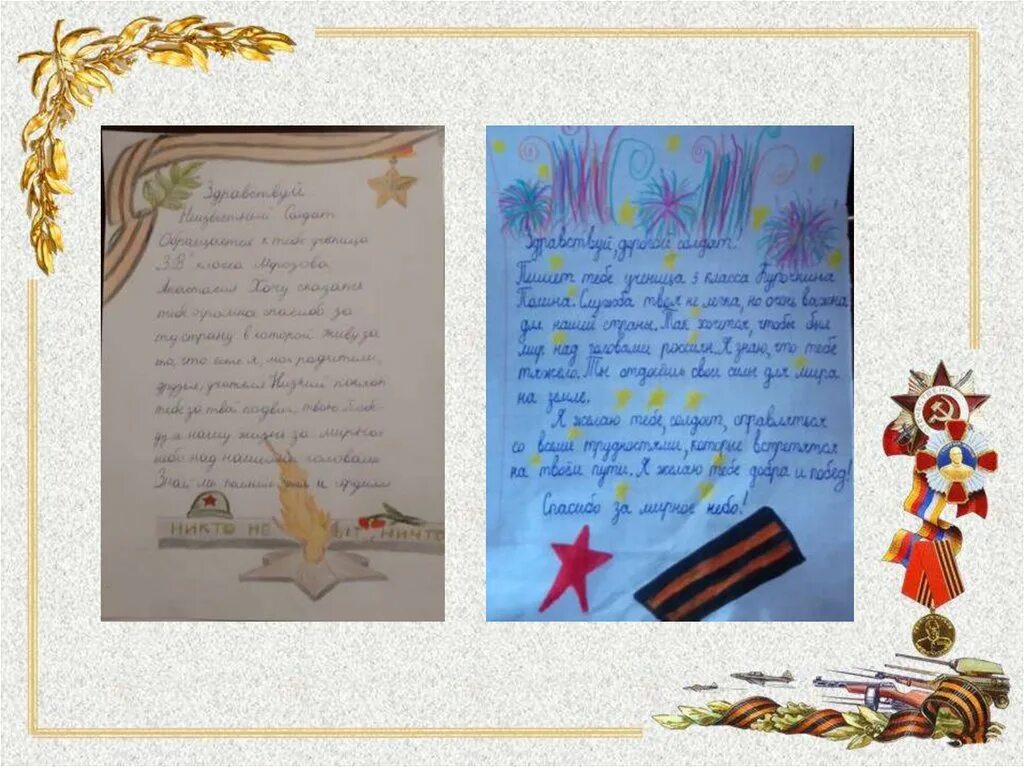 Здравствуй
Неизвестный Солдат
Обращается к тебе ученица
3 "В" класса Морозова
Анастасия Хочу сказать
тебе огромная спасибо за
ту страну в которой живу за
то, что есть я, мои родители,
друзья, учителя Низкий поклон
тебе за твой подвиг, твою
нашу жизнь за мирное
небо над нашими головами
Знай мы помним и гордимся
НИКТО НЕ ЫТ, НИЧТО
Здравствуй, дорогой солдат.
Пишет тебе ученица 3 класса Курочкина
Полина. Служба твоя не легка, но очень важна
для нашей страны. Так хочется, чтобы был
мир над головами россиян. Я знаю, что тебе
тяжело. Ты отдаёшь свои силы для мира
на земле.
Я желаю тебе, солдат, справляться
со всеми трудностями, которые встретятся
на твоём пути. Я желаю тебе добра и побед!
Спасибо за мирное небо!